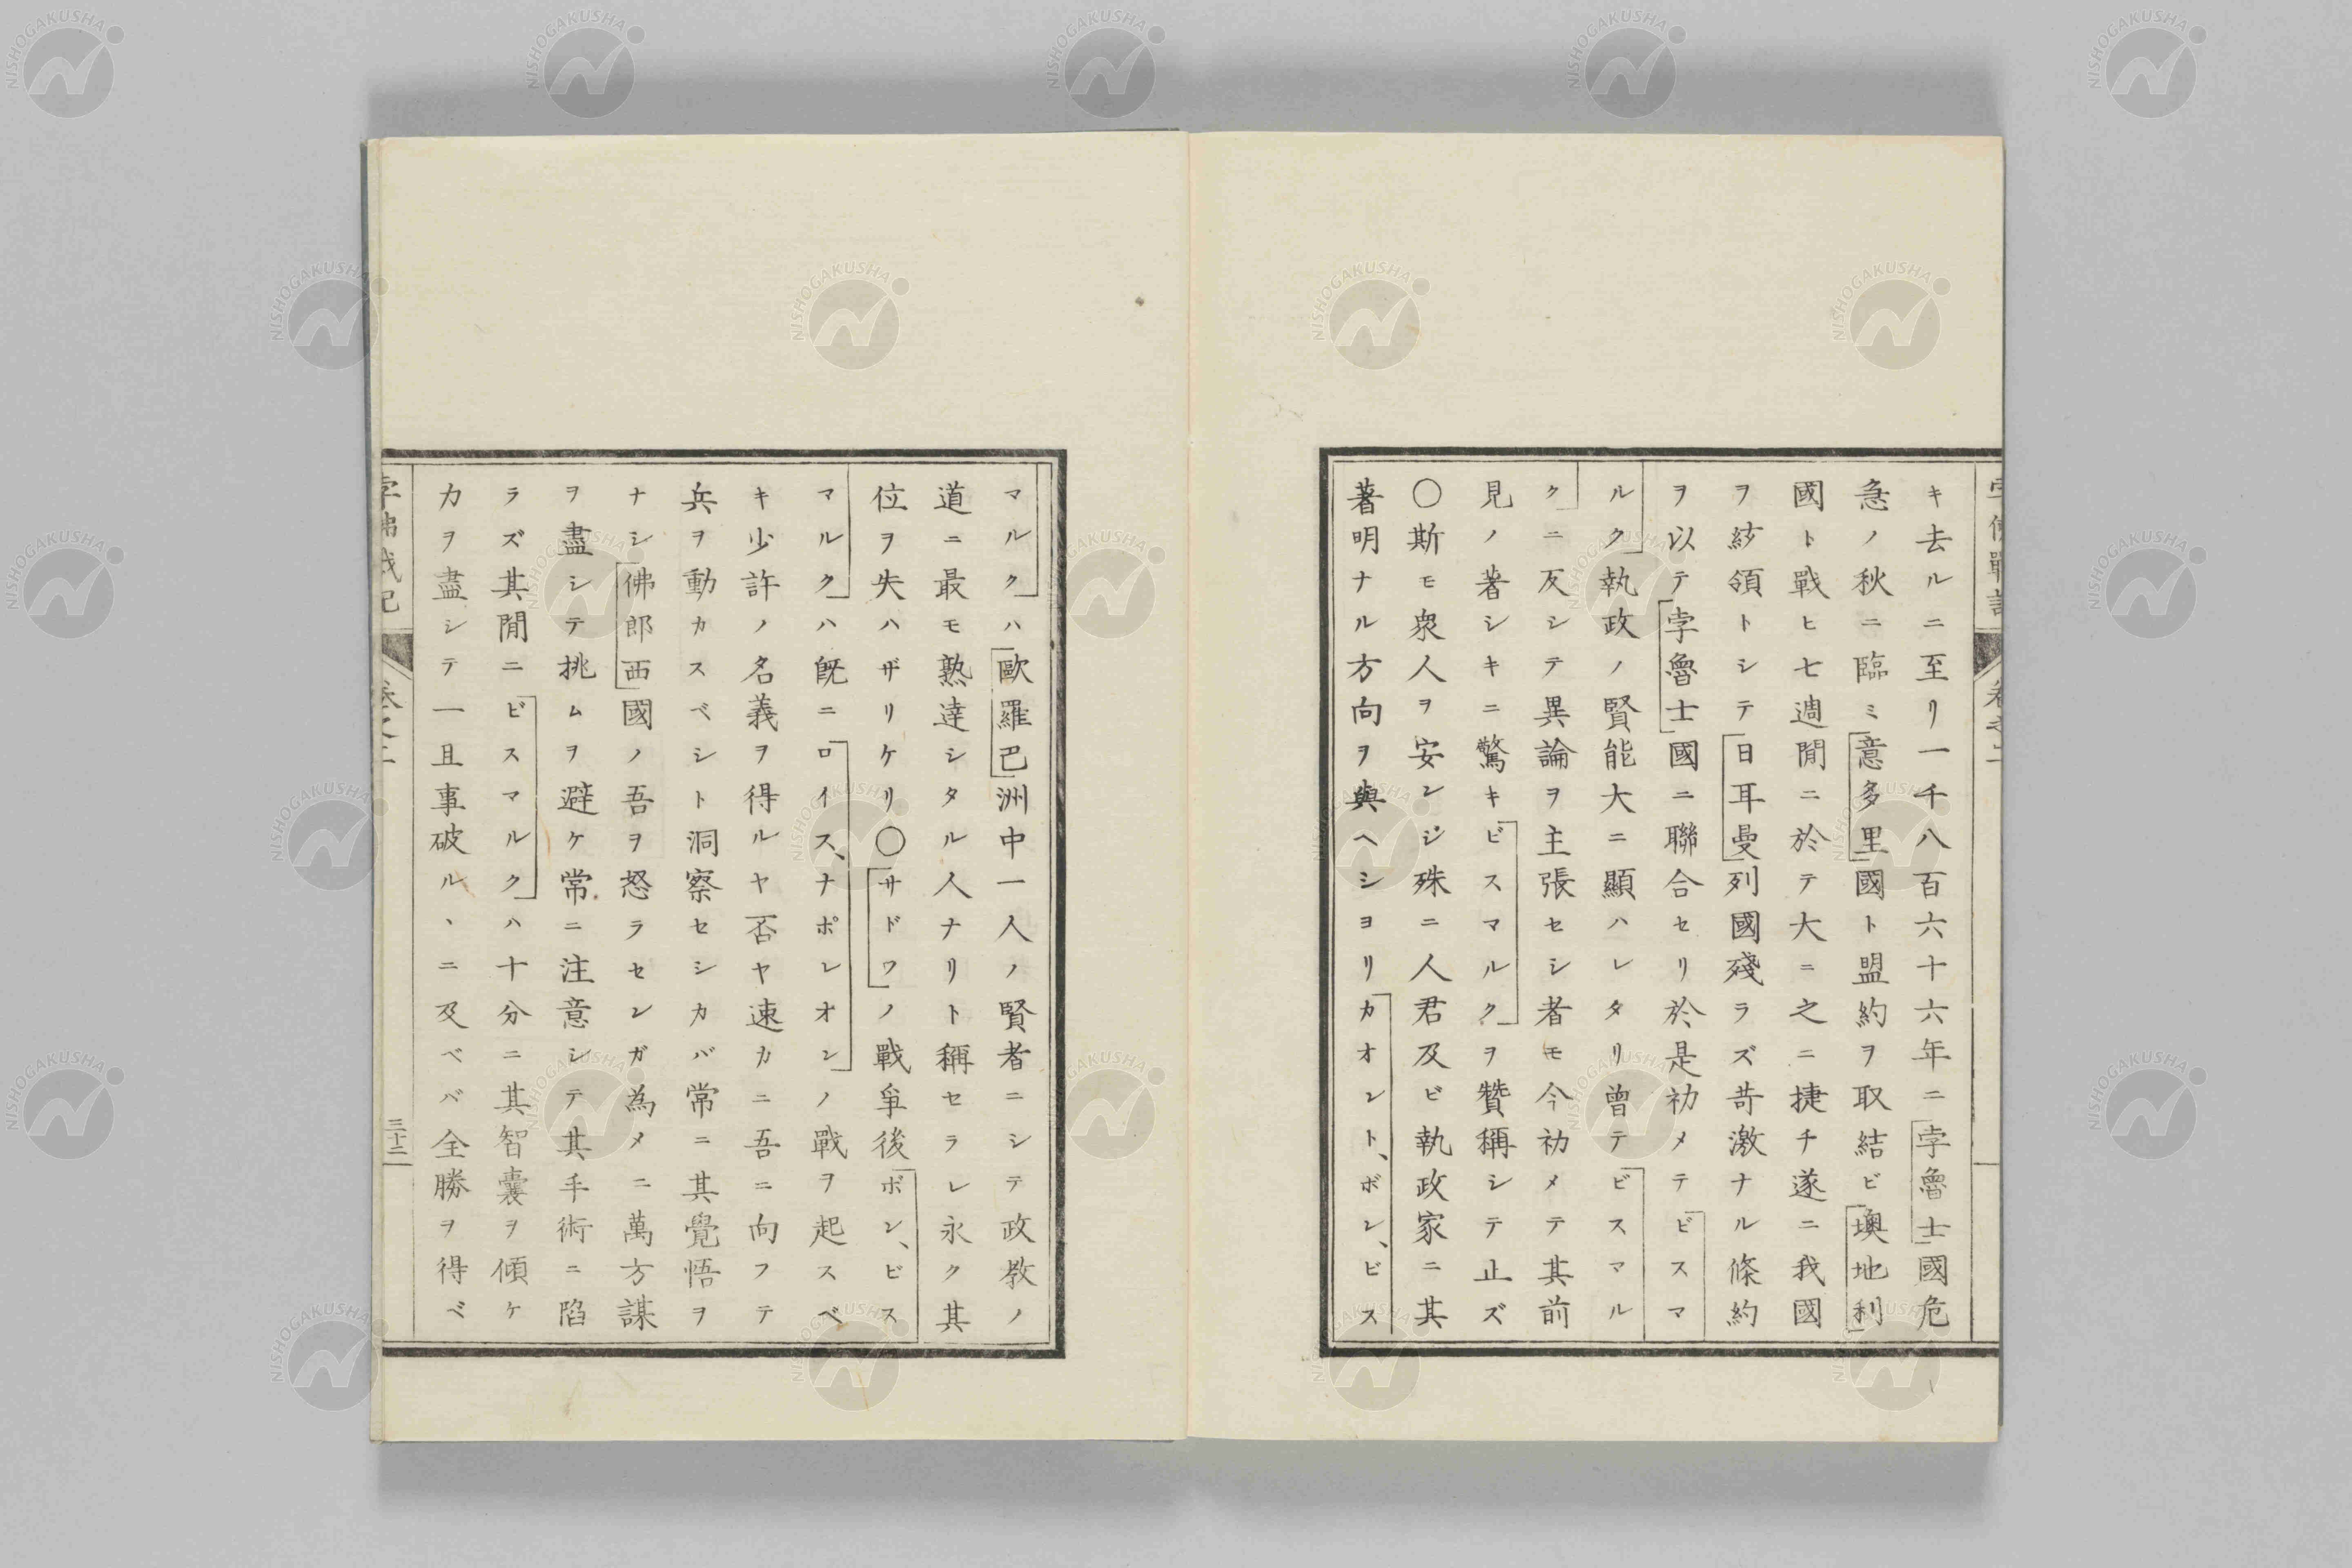 孛佛戰記
卷之二
キ去ルニ至リ一千八百六十六年ニ孛魯士國危
急ノ秋ニ臨ミ意多里國ト盟約ヲ取結ビ墺地利
國ト戰ヒ七週間ニ於テ大ニ之ニ捷チ遂ニ我國
ヲ紗領トシテ日耳曼列國殘ラズ苛激ナル條約
ヲ以テ孛魯士國ニ聯合セリ於是初メテビスマ
ルク執政ノ賢能大ニ顯ハレタリ曾テビスマル
クニ反シテ異論ヲ主張セシ者モ今初メテ其前
見ノ著シキニ驚キビスマルクヲ贊稱シテ止ズ
〇斯モ衆人ヲ安ンジ殊ニ人君及ビ執政家ニ其
著明ナル方向ヲ與ヘシヨリカオント、ボン、ビス
マルクハ歐羅巴洲中一人ノ賢者ニシテ政教ノ
道ニ最モ熟達シタル人ナリト稱セラレ永ク其
位ヲ失ハザリケリ〇サドワノ戰爭後ボン、ビス
マルクハ既ニロイス、ナポレオンノ戰ヲ起スベ
キ少許ノ名義ヲ得ルヤ否ヤ速カニ吾ニ向フテ
兵ヲ動カスベシト洞察セシカバ常ニ其覺悟ヲ
ナシ佛郎西國ノ吾ヲ怒ラセンガ為メニ萬方謀
ヲ盡シテ挑ムヲ避ケ常ニ注意シテ其手術ニ陷
ラズ其間ニビスマルクハ十分ニ其智囊ヲ傾ケ
力ヲ盡シテ一且事破ル丶ニ及ベバ全勝ヲ得ベ
孛佛戰記
卷之二
三十二
NISHOGAKUSHA